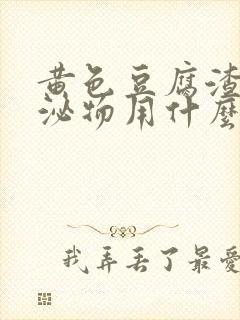 黄色豆腐渣
泌物用什麼
我弄丢了最愛